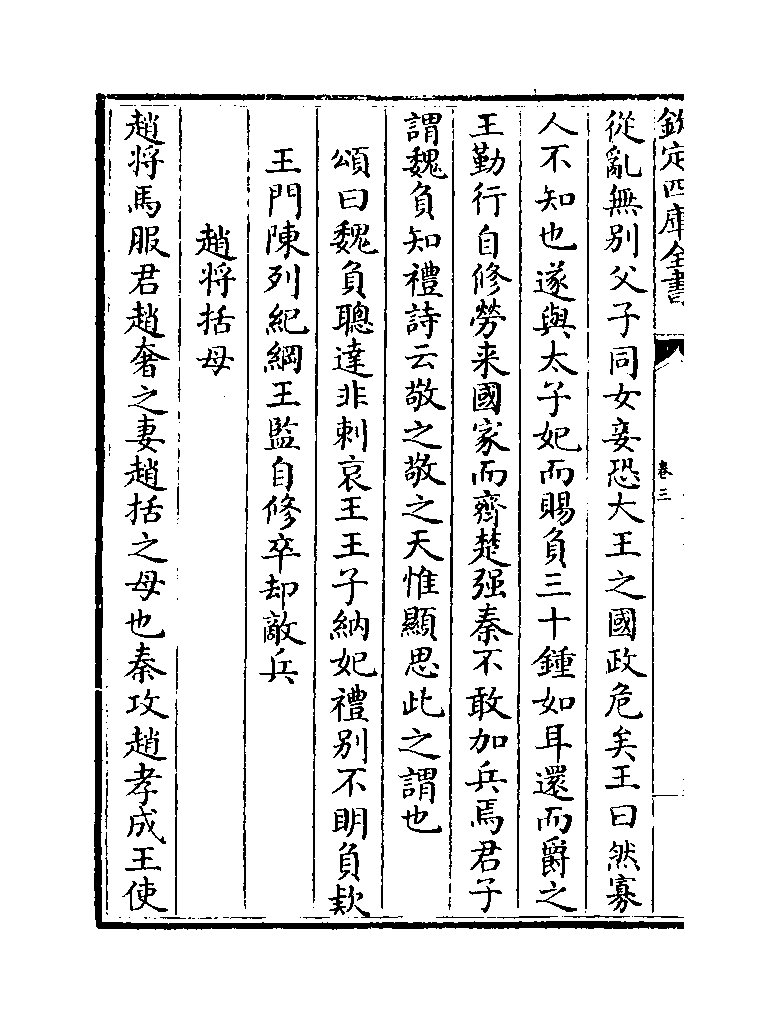 欽定四庫全書
卷三
從亂無別父子同女妾恐大王之國政危矣王曰然寡
人不知也遂與太子妃而賜負三十鍾如耳還而爵之
王勤行自修勞来國家而齊楚强秦不敢加兵焉君子
謂魏負知禮詩云敬之敬之天惟顯思此之謂也
頌曰魏負聰達非刺哀王王子納妃禮別不明負款
王門陳列紀綱王監自修卒却敵兵
趙将括母
趙将馬服君趙奢之妻趙括之母也秦攻趙孝成王使